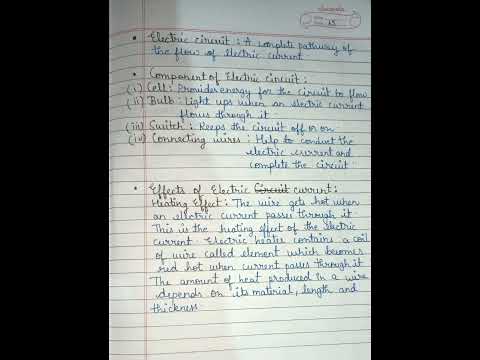 classmate
25
• Electric circuit : A complete pathway of
the flow of electric current
• Component of Electric circuit :
(i) Cell : Provides energy for the circuit to flow
(ii) Bulb : Light ups when an electric current
flows through it.
(iii) Switch : Keeps the circuit off or on
(iv) Connecting wires : Help to conduct the
electric current and
complete the circuit
• Effects of Electric Circuit current :
Heating Effect : The wire gets hot when
an electric current passes through it.
This is the heating effect of the electric
current. Electric heater contains a coil
of wire called element which becomes
red hot when current passes through it.
The amount of heat produced in a wire
depends on its material, length and
thickness.